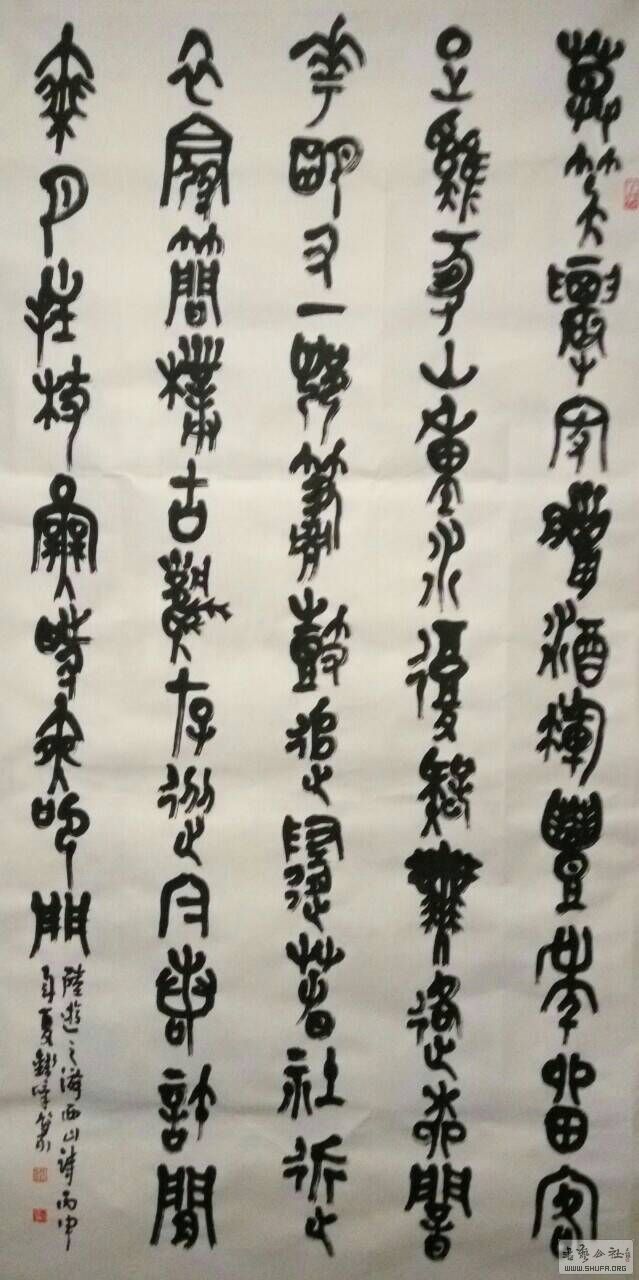 莫笑農家臘酒渾豐年留客
足雞豚山重水復疑無路柳暗
花明又一村簫鼓追隨春社近
衣冠簡樸古風存從今若許閒
乘月拄杖無時夜叩門
陸遊之游西山詩丙申
年夏篆
书艺公社
WWW.SHUFA.ORG